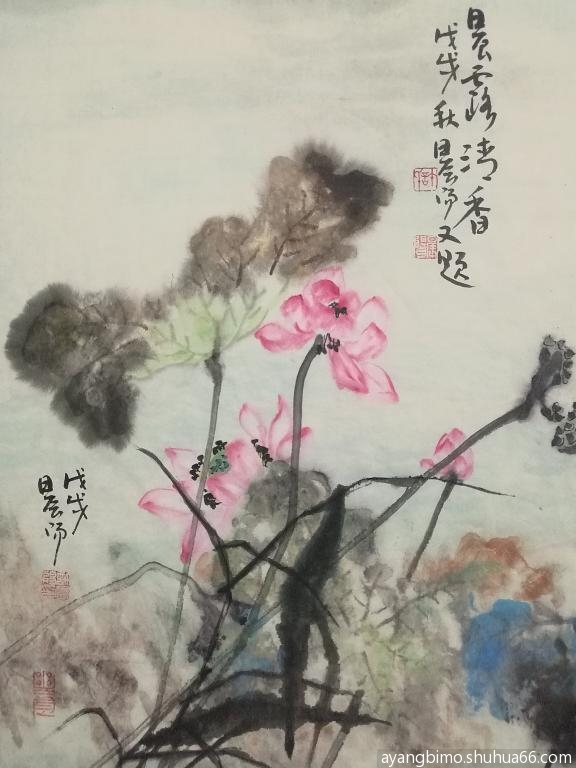 晨露清香
戊戌秋晨师又题
戊戌
晨师
ayangbimo.shuhua66.com